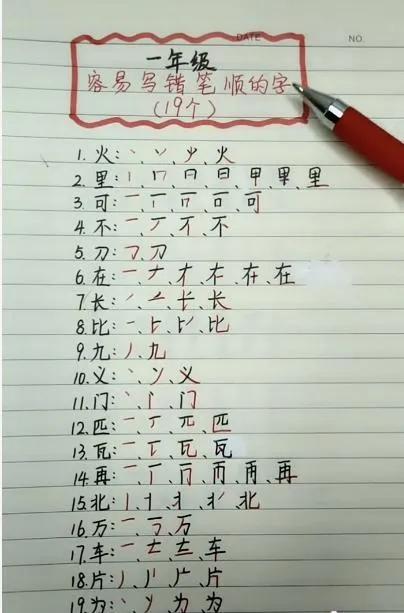 DATE
NO.
一年级
容易写错笔顺的字
(19个)
1. 火: 丶、丷、、火
2. 里: 丨、冂、日、日、甲、里、里
3. 可: 一、丅、、、可
4. 不: 一、丆、不、不
5. 刀: 𠃌、刀
6. 在: 一、𠂇、才、、在、在
7. 长: 丿、、长、长
8. 比: 一、、、比
9. 九: 丿、九
10. 义: 丶、丷、义
11. 门: 丶、、门
12. 匹: 一、丆、兀、匹
13. 瓦: 一、、瓦、瓦
14. 再: 一、丅、、、再、再
15. 北: 丨、、、、北
16. 万: 一、丂、万
17. 车: 一、、、车
18. 片: 丿、、、片
19. 为: 丶、、为、为